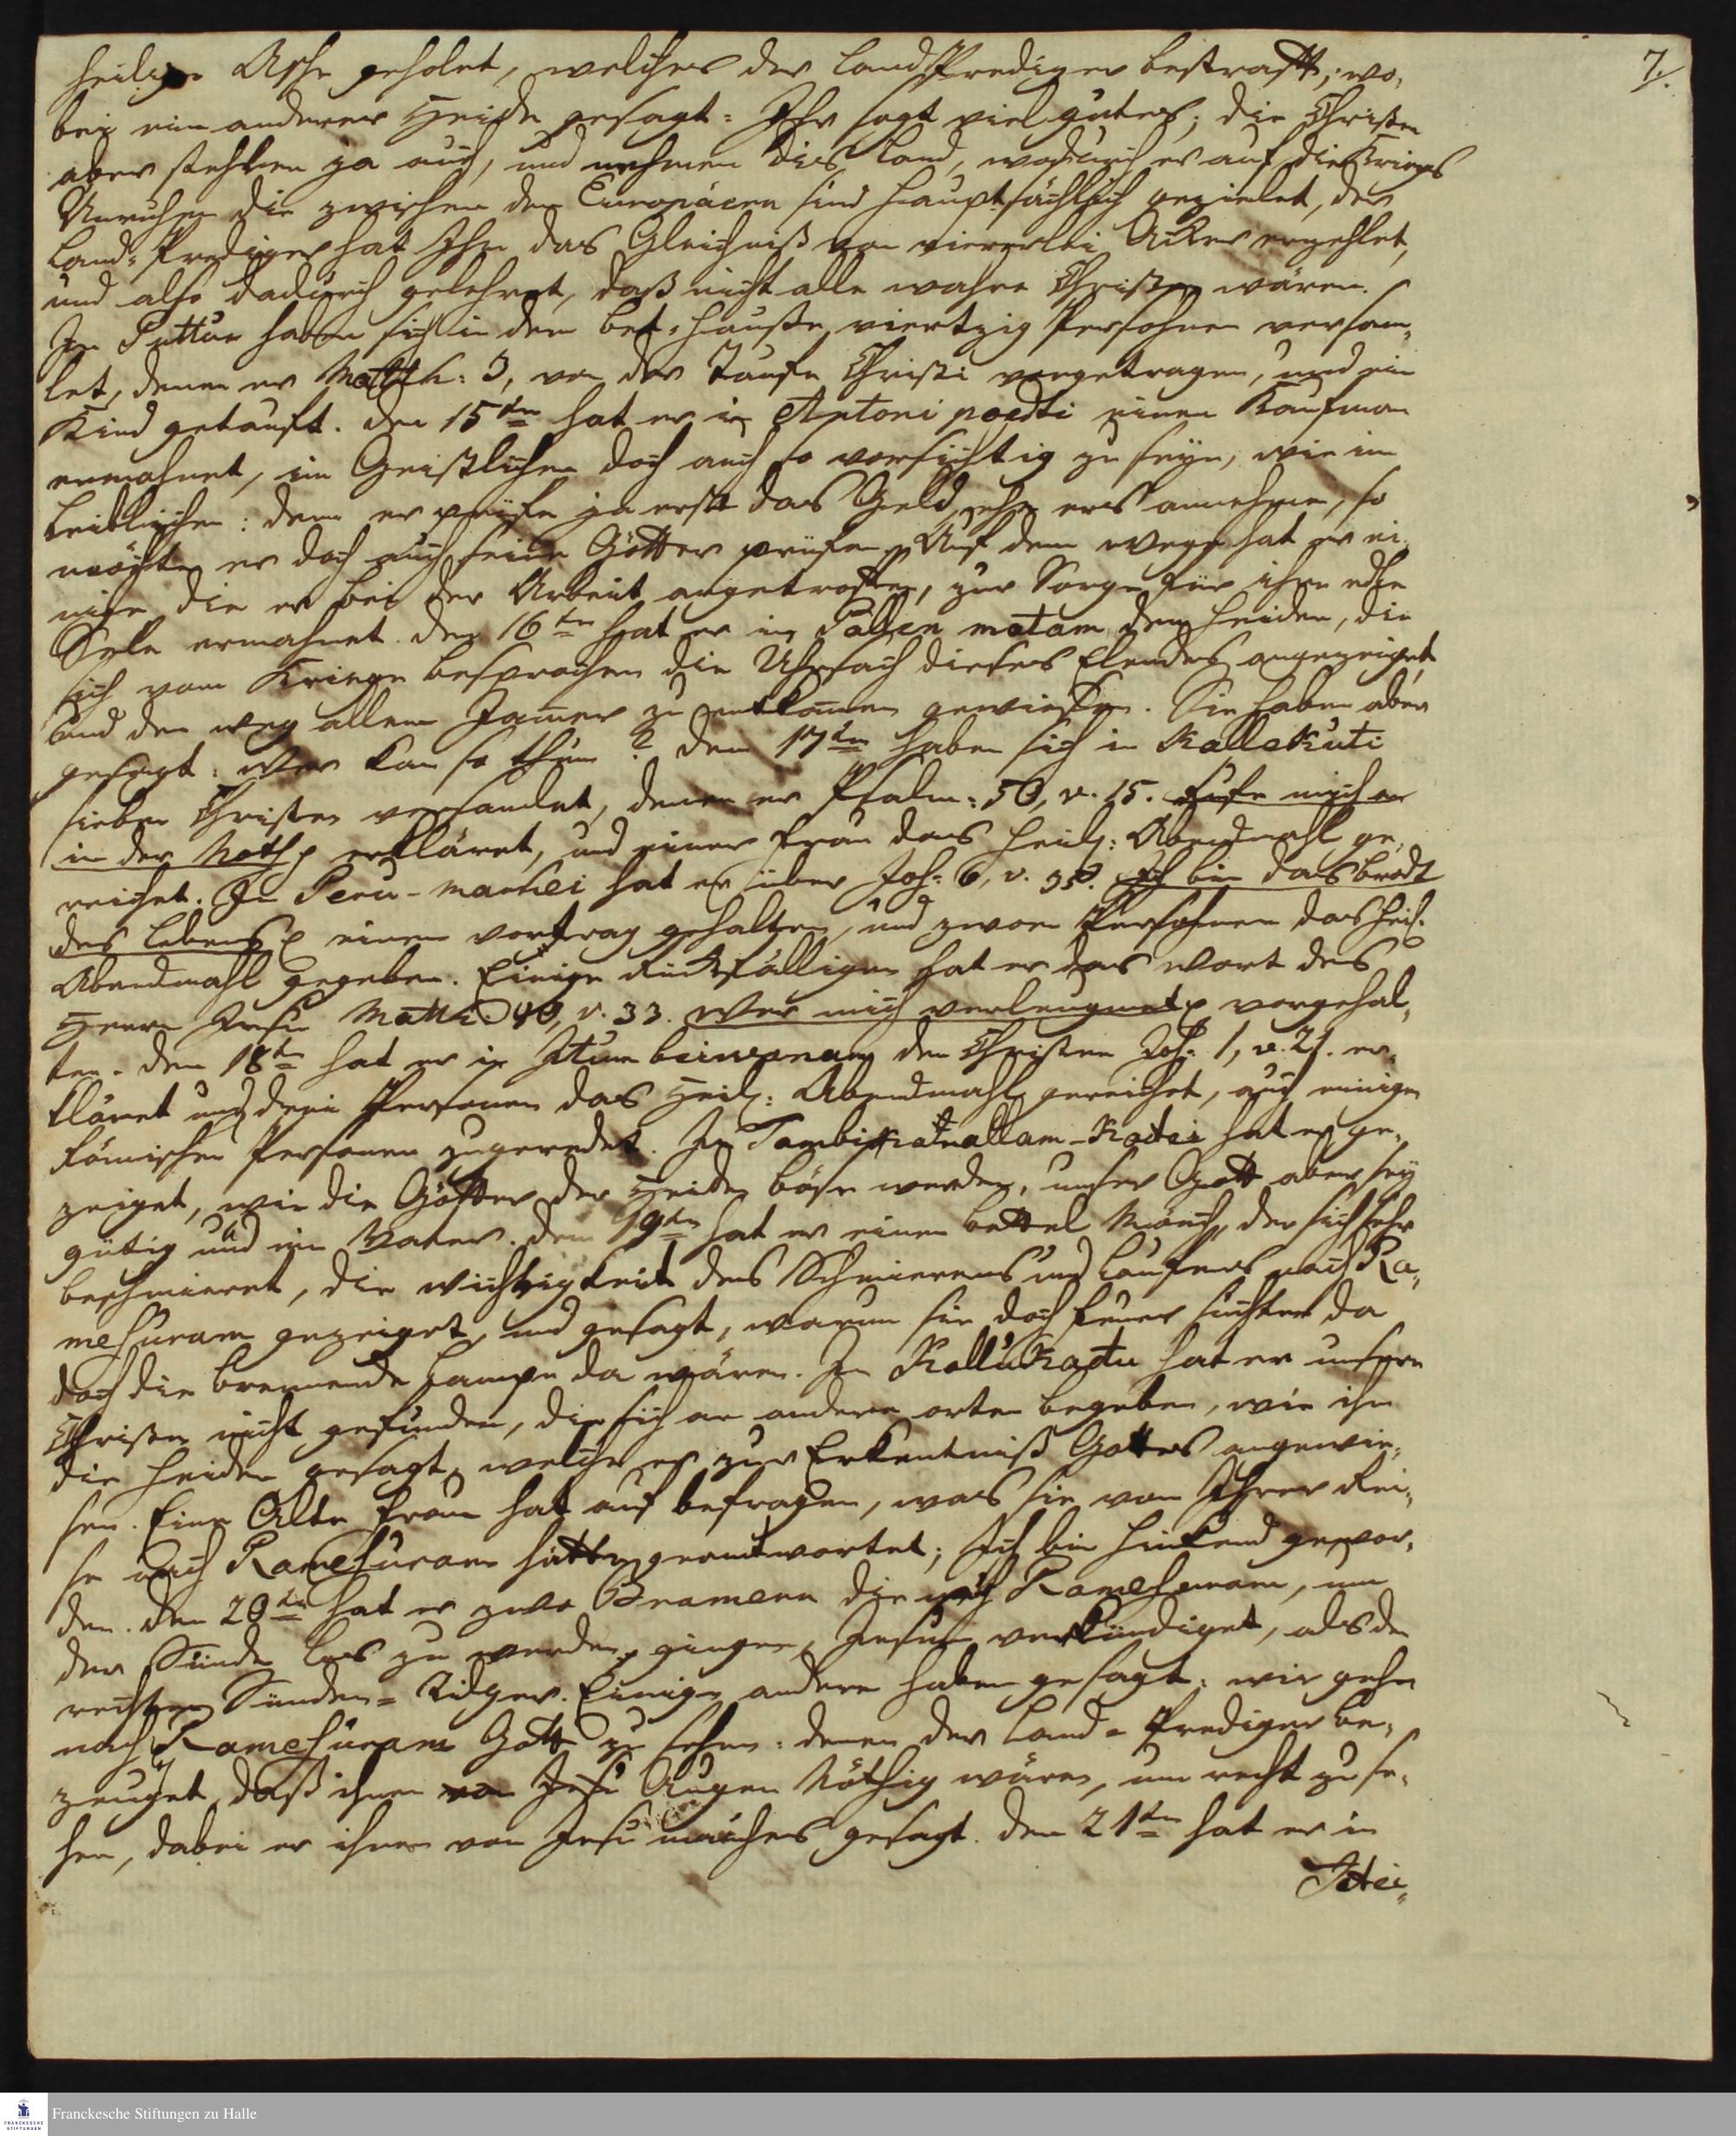 7.
heilige Asche geholet, welches der Land-Prediger bestrafft; wo-
bei ein anderer Heide gesagt: Ihr sagt viel gutes; die Christen
aber stehlen ja auch, und nehmen dies Land, wodurch er auf die Kriegs
Unruhen die zwischen den Europäern sind hauptsächlich gezielet, der
Land-Prediger hat Ihm das Gleichniß von viererlei Acker erzehlet,
und also dadurch gelehret, daß nicht alle wahre Christen wären.
In Puttur haben sich in dem Bet-Hauße viertzig Persohnen versam-
let, denen er Matth: 3, von der Taufe Christi vorgetragen, und ein
Kind getauft. den 15ten hat er in Antoni poedti einen Kaufman
ermahnet, im Geistlichen doch auch so vorsichtig zu seyn, wie im
Leiblichen: denn er prüfe ja erst das Geld, ehe ers annehme, so
möchte er doch auch seine Götter prüfen. Auf dem wege hat er ei-
nige die er bei der Arbeit angetroffen, zur Sorge für ihre edle
Sele ermahnet. den 16ten hat er in Pallen matam den Heiden, die
sich vom Kriege besprochen die Uhrsach dieses Elendes angezeiget
und den weg allem Jamer zu entkomen gewiesen. Sie haben aber
gesagt: Wer kan so thun? den 17ten haben sich in Kallekuti
sieben Christen versamlet, denen er Psalm: 50, v. 15. Rufe mich an
in der Noth p erkläret, und einer Frau das Heil: Abendmahl ge-
reichet. In Peru-markei hat er über Joh: 6, v. 35. Ich bin das brodt
des Lebens p einen vortrag gehalten, und zwoen Persohnen das Heil.
Abendmahl gegeben. Einigen Rückfälligen hat er das Wort des
Herrn Jesu Matth. 10, v. 33. Wer mich verleugnet p vorgehal-
ten. den 18ten hat er in den Christen Joh: 1, v. 21. er-
kläret und drei Personen das Heil: Abendmahl gereichet, auch einigen
Römischen Personen zugeredet. In hat er ge-
zeiget, wie die Götter der Heiden böse werden, unser Gott aber sey
gütig und ein Vater. den 19ten hat er einem bettel Mönch, der sich sehr
beschmieret, die Nichtigkeit des Schmierens und Laufens nach Ra-
mesuram gezeiget, und gesagt, warum sie doch Feuer suchten da
doch die brennende Lampe da wären. In Kallukadu hat er unsere
Christen nicht gefunden, die sich an andere orten begeben, wie ihm
die Heiden gesagt, welche er zur Erkentniß Gottes angewie-
sen. Eine Alte Frau hat auf befragen, was sie von Ihrer Rei-
se nach Ramesuram hätte, geantwortet; Ich bin hinkend gewor-
den. den 20ten hat er zwo Bramenn die nach Ramesuram, um
der Sünde los zu werden, gingen, Jesum verkündiget, als den
rechten Sünden-Tilger. Einige andere haben gesagt: wir gehn
nach Ramesuram Gott zu sehen: denen der Land-Prediger be-
zeuget, daß ihnen von Jesu Augen Nöthig wären, um recht zu se-
hen, dabei er ihnen von Jesu manches gesagt. den 21ten hat er in
Franckesche Stiftungen zu Halle